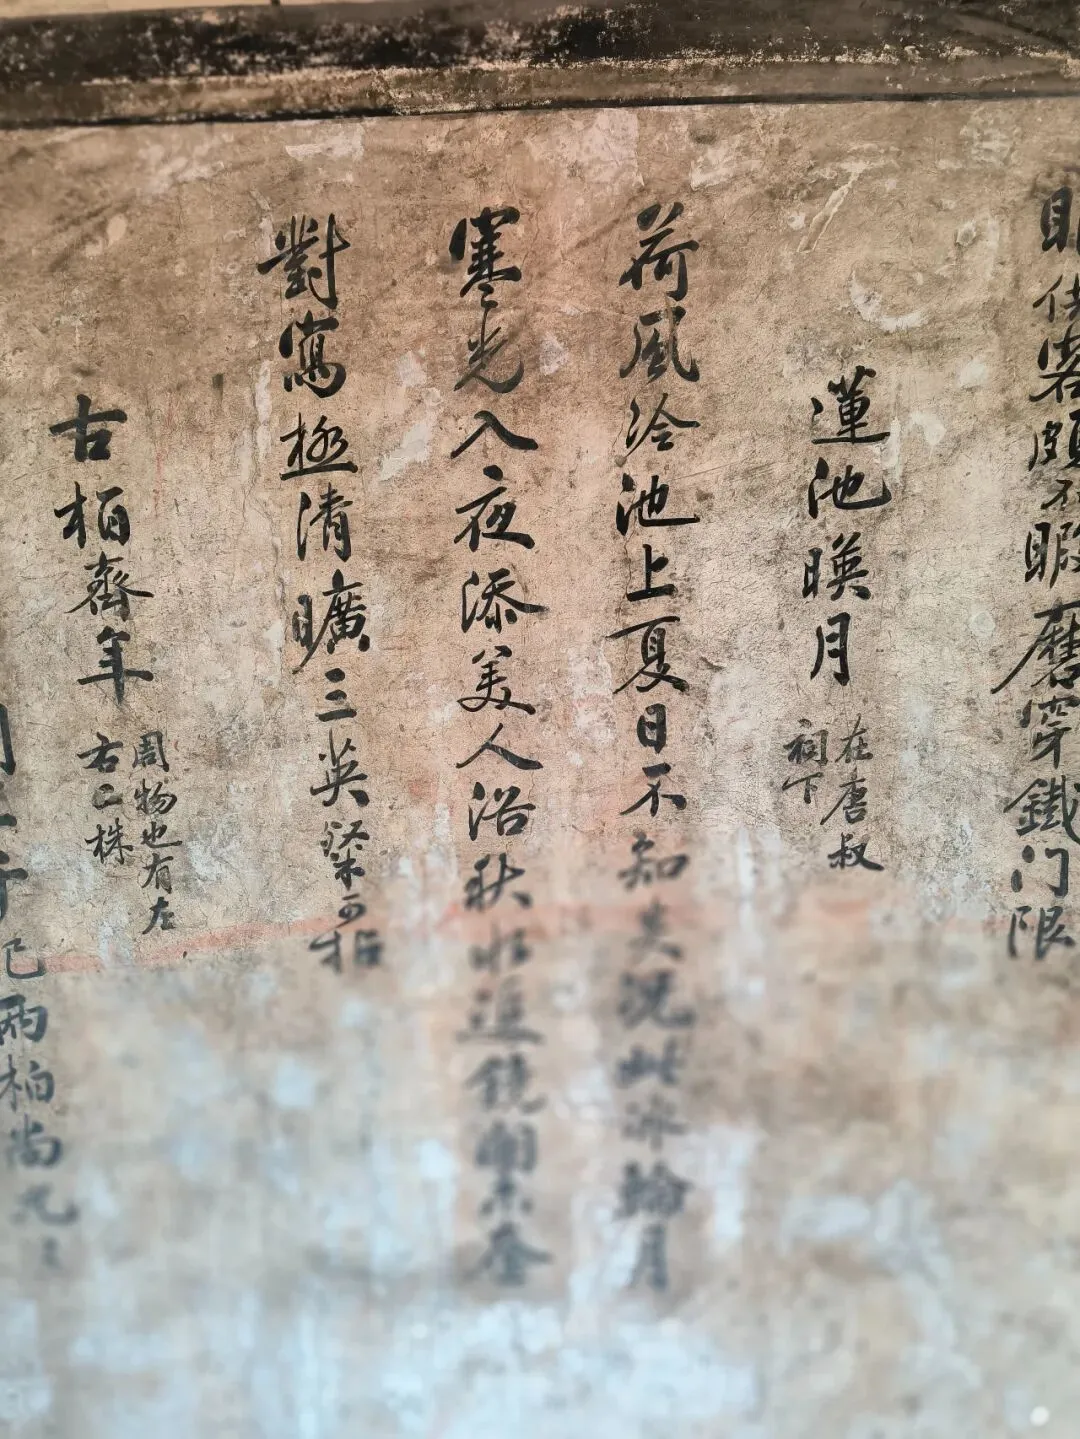 供客頗不暇磨穿鐵門限
蓮池暎月
在唐叔
祠下
荷風泠池上夏日不知炎況此冰輪月
寒光入夜添美人浴秋水逗鏡
對窩極清曠三英粲可指
古栢齊年
周物也有左
右二株
已兩柏尚